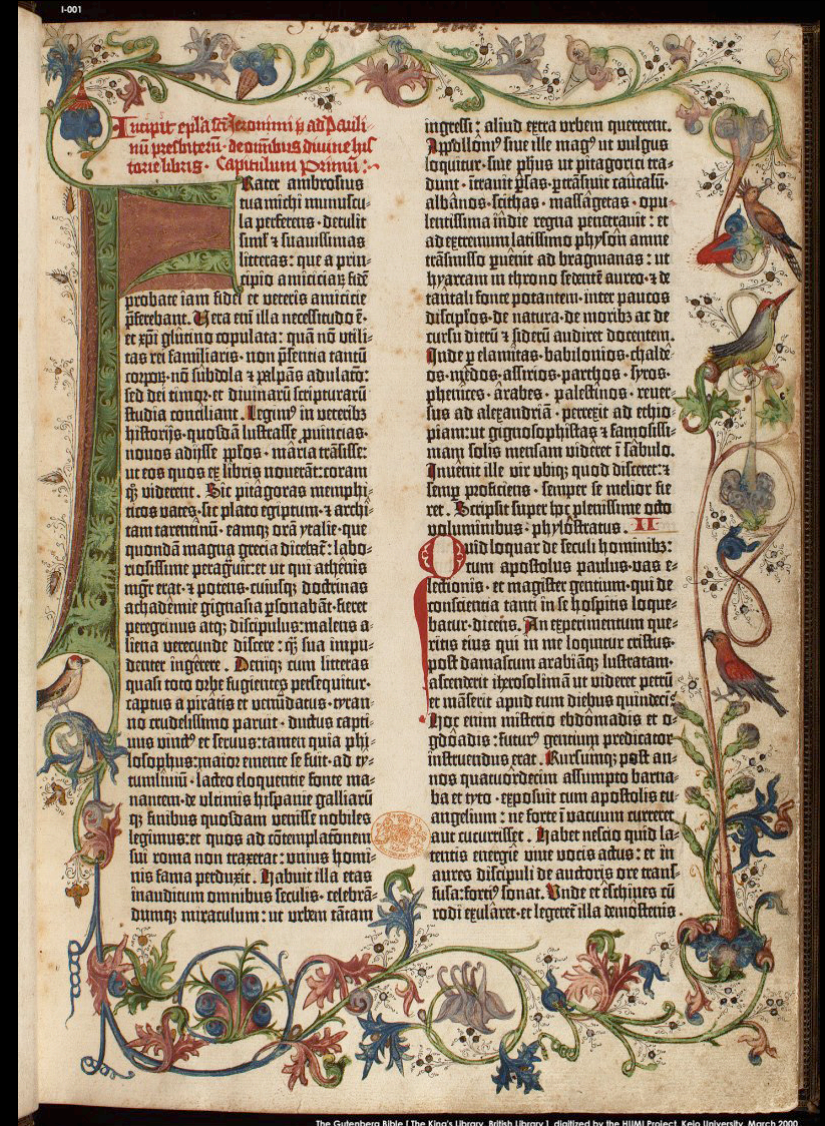 I-001
Incipit epl̄a sc̄i Jeronimi ꝑ̄ ad Pauli⸗
nū presbiterū · de om̄ibus diuine his⸗
torie libris · Capitulum Primū :·
Frater ambrosius
tua michi munuscu⸗
la perferens · detulit
simul ⁊ suauissimas
litteras : que a prin⸗
cipio amiciciaꝝ fidē
probate iam fidei et veteris amicicie
p̄ferebant. Uera eni illa necessitudo ē·
et xp̄i glutino copulata : quā nō vtili⸗
tas rei familiaris · non p̄sentia tantū
corpoꝝ · nō subdola ⁊ palpās adulatō :
sed dei timor · et diuinarū scripturarū
studia conciliant. Legimꝰ in veteribꝫ
historijs · quosdā lustrasse ꝓuincias ·
nouos adijsse ppl̄os · maria trāsisse :
ut eos quos ex libris nouerāt : coram
qꝫ viderent. Sic pitagoras memphi⸗
ticos vates · sic plato egiptum · ⁊ archi⸗
tam tarentinū · eamqꝫ orā ytalie · que
quondā magna grecia dicebat̄ : labo⸗
riosissime peragᵒuit : et ut qui athenis
mgr̄ erat · ⁊ potens · cuiusqꝫ doctrinas
achademie gignasia ꝑsonabāt · fieret
peregrinus atqꝫ discipulus : malens a⸗
liena verecunde discere : qꝫ̄ sua impu⸗
denter ingerere . Deniqꝫ cum litteras
quasi toto orbe fugientes persequitur ·
captus a piratis et venūdatus · tyran⸗
no crudelissimo paruit · ductus capti⸗
uus vinctꝰ et seruus : tamen quia phi⸗
losophus : maior emente se fuit · ad ty⸗
tumliuiū · lacteo eloquentie fonte ma⸗
nantem · de vltimis hispanie galliarū
qꝫ finibus quosdam venisse nobiles
legimus : et quos ad cōtemplatōnem
sui roma non traxerat : vnius homi⸗
nis fama perduxit . Habuit illa etas
inauditum omnibus seculis · celebrā⸗
dumqꝫ miraculum : ut vrbem tātam
ingressi : aliud extra vrbem quererent.
Appollonꝰ siue ille magꝰ ut vulgus
loquitur · siue ph̄us ut pitagorici tra⸗
dunt · ītrauit ꝑsas · ꝑtrāsiuit caucasū ·
albanos · scithas · massagetas · opu⸗
lentissima indie regna penetrauit : et
ad extremum latissimo physon amne
trāsmisso ꝑuenit ad bragmanas : ut
hyarcam in throno sedentē aureo · ⁊ de
tantali fonte potantem · inter paucos
discipl̄os · de natura · de moribꝫ ac de
cursu dierū ⁊ siderū audiret docentem.
Inde ꝑ elamitas · babilonios · chalde⸗
os · medos · assirios · parthos · syros ·
phenices · arabes · palestinos · reuer⸗
sus ad alexandriā · perrexit ad ethio⸗
piam : ut gignosophistas ⁊ famosissi⸗
mam solis mensam videret ī sabulo.
Inuenit ille vir vbiqꝫ quod disceret : ⁊
semꝑ proficiens · semper se melior fie
ret . Scripsit super hoc plenissime octo
voluminibus · phylostratus . II
Quid loquar de seculi hominibꝫ :
cum apostolus paulus · vas e⸗
lectionis · et magister gentium · qui de
conscientia tanti in se hospitis loque⸗
batur · dicens. An experimentum que⸗
ritis eius qui in me loquitur cristus ·
post damascum arabiāqꝫ lustratam ·
ascenderit iherosolimā ut videret petrū
et māserit apud eum diebus quindeci ·
Hoc enim misterio ebdomadis et o⸗
gdoadis : futurꝰ gentium predicator
instruendus erat . Rursumqꝫ post an⸗
nos quatuordecim assumpto barna⸗
ba et tyto · exposuit cum apostolis eu⸗
angelium : ne forte ī vacuum curreret
aut cucurrisset . Habet nescio quid la⸗
tentis energie viue vocis actus : et in
aures discipuli de auctoris ore trans⸗
fusa : fortiꝰ sonat. Unde et eschines cū
rodi exularet · et legeret̄ illa demostenis ·
The Gutenberg Bible [ The King's Library, British Library ], digitized by the HUMI Project, Keio University, March 2000